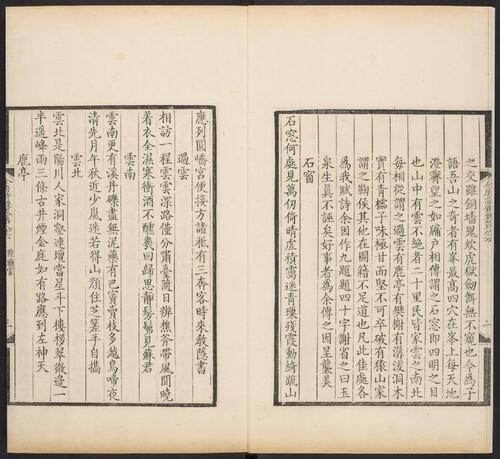 之交雞銅墻鬼炊虎獄劒餌無不窺也今為子
語吾山之奇者有峯最高四穴在峯上每天地
澄霽望之如牖户相傳謂之石窓即四明之目
也山中有雲不絕者二十里民皆家雲之南北
每相從謂之過雲有鹿亭有樊榭有潺湲洞木
實有青櫺子味極甘而堅不可卒破有猿山家
謂之鞠侯其他在圖籍不足道也凡此佳處各
為我賦詩余因作九題題四十字謝省之曰玉
泉生真不誣矣好事者為余傳之因呈襲美
石窗
石窓何處見萬仞倚晴虛積靄迷青瑣殘霞動綺疏山
應列圓嶠宮便接方諸秪有三奔客時來教隱書
過雲
相訪一程雲雲深路僅分嘯臺隨日辨樵斧帶風聞曉
著衣全濕寒衝酒不醺幾回歸思靜髣髴見蘇君
雲南
雲南更有溪丹礫盡無泥藥有巴賨賣枝多越鳥啼夜
清先月午秋近少嵐迷若得山顏住芝手自攜
雲北
雲北是陽川人家洞壑連壇當星斗下樓拶翠微邊一
半遙峰雨三條古井煙金庭如有路應到左神天
鹿亭